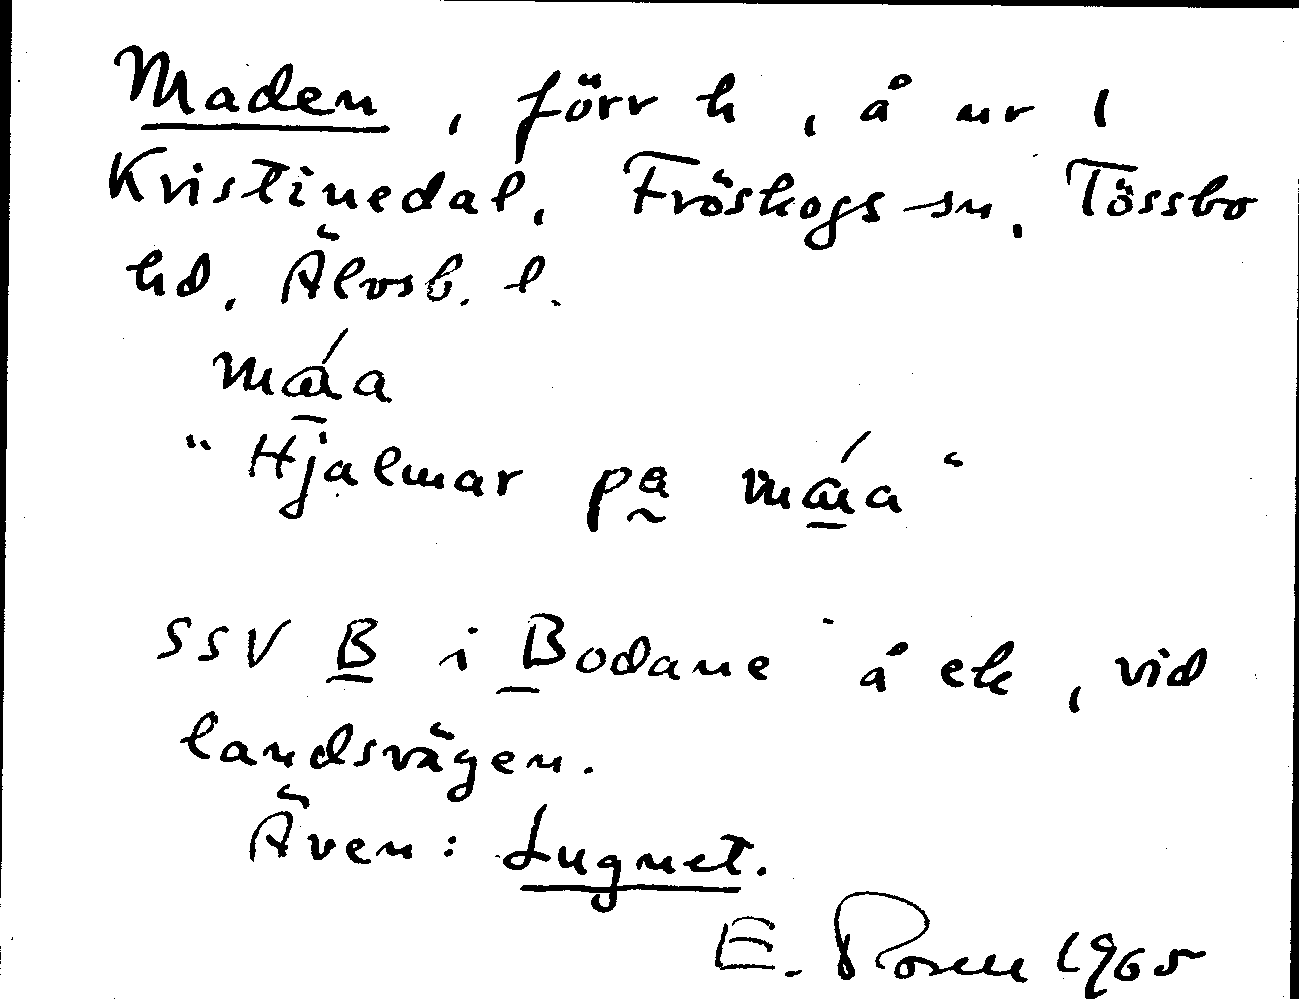 Maden, förr h, å nr 1
Kristinedal, Fröskogs sn, Tössbo
hd, Älvsb. l.
máa
"Hjalmar pa máa"
SSV B i Bodane å ek, vid
landsvägen.
Även: Lugnet.
E. Rosell 1965